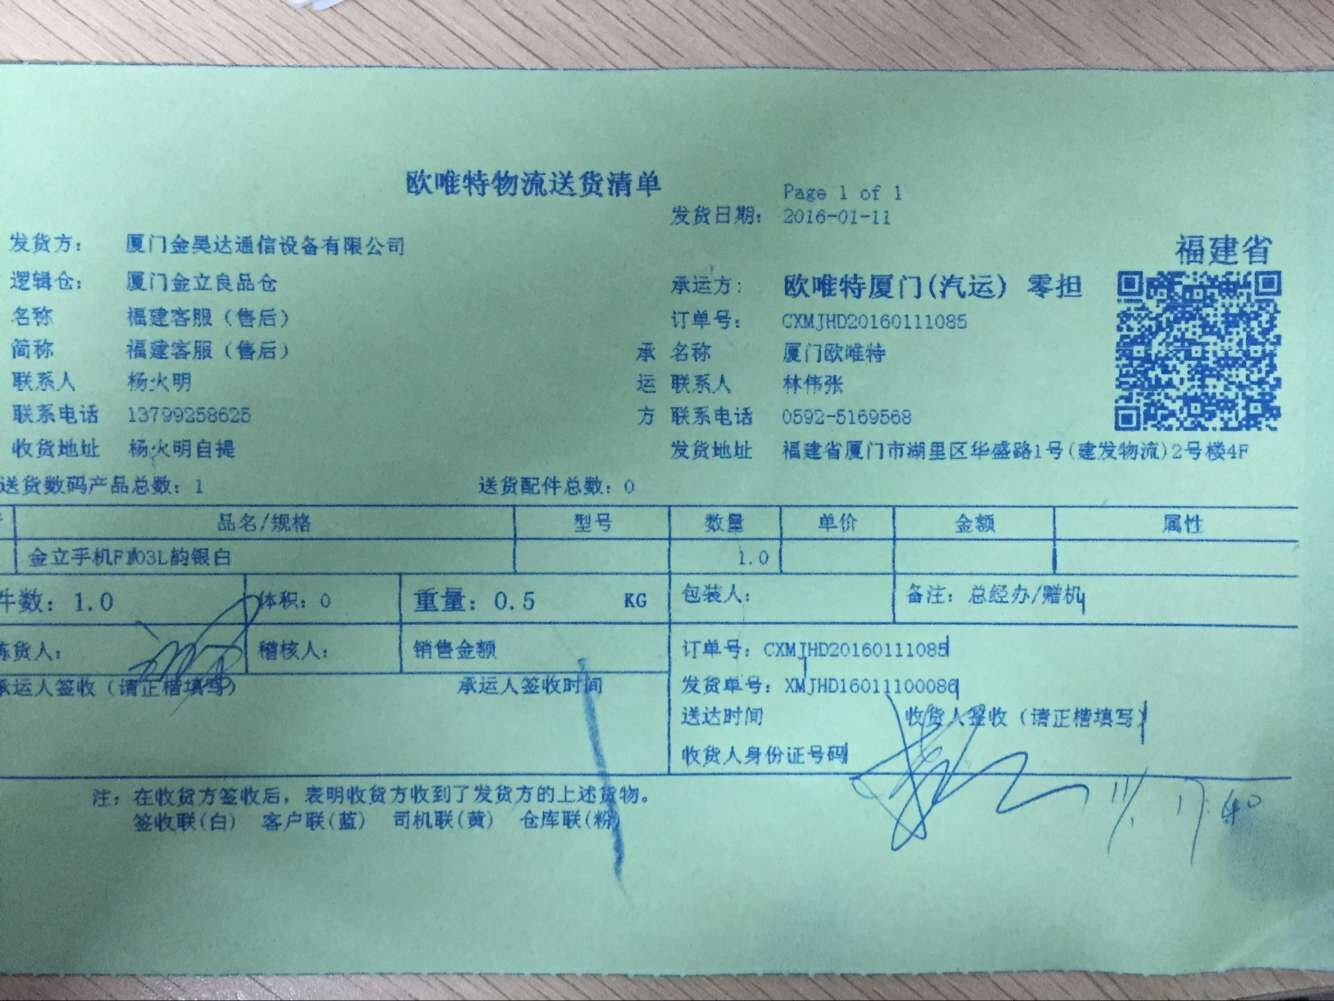 欧唯特物流送货清单
Page 1 of 1
发货日期： 2016-01-11
发货方： 厦门金昊达通信设备有限公司
福建省
逻辑仓： 厦门金立良品仓
承运方： 欧唯特厦门(汽运) 零担
名称 福建客服（售后）
订单号： CXMJHD20160111085
简称 福建客服（售后）
承 名称 厦门欧唯特
联系人 杨火明
运 联系人 林伟张
联系电话 13799258625
方 联系电话 0592-5169568
收货地址 杨火明自提
发货地址 福建省厦门市湖里区华盛路1号(建发物流)2号楼4F
送货数码产品总数：1 送货配件总数：0
品名/规格 型号 数量 单价 金额 属性
金立手机F103L韵银白 1.0
件数：1.0 体积：0 重量：0.5 KG 包装人： 备注：总经办/赠机
拣货人： 稽核人： 销售金额 订单号：CXMJHD20160111085
承运人签收（请正楷填写） 承运人签收时间 发货单号：XMJHD16011100086
送达时间 收货人签收（请正楷填写）
收货人身份证号码
11/1. 17:40
注：在收货方签收后，表明收货方收到了发货方的上述货物。
签收联(白) 客户联(蓝) 司机联(黄) 仓库联(粉)